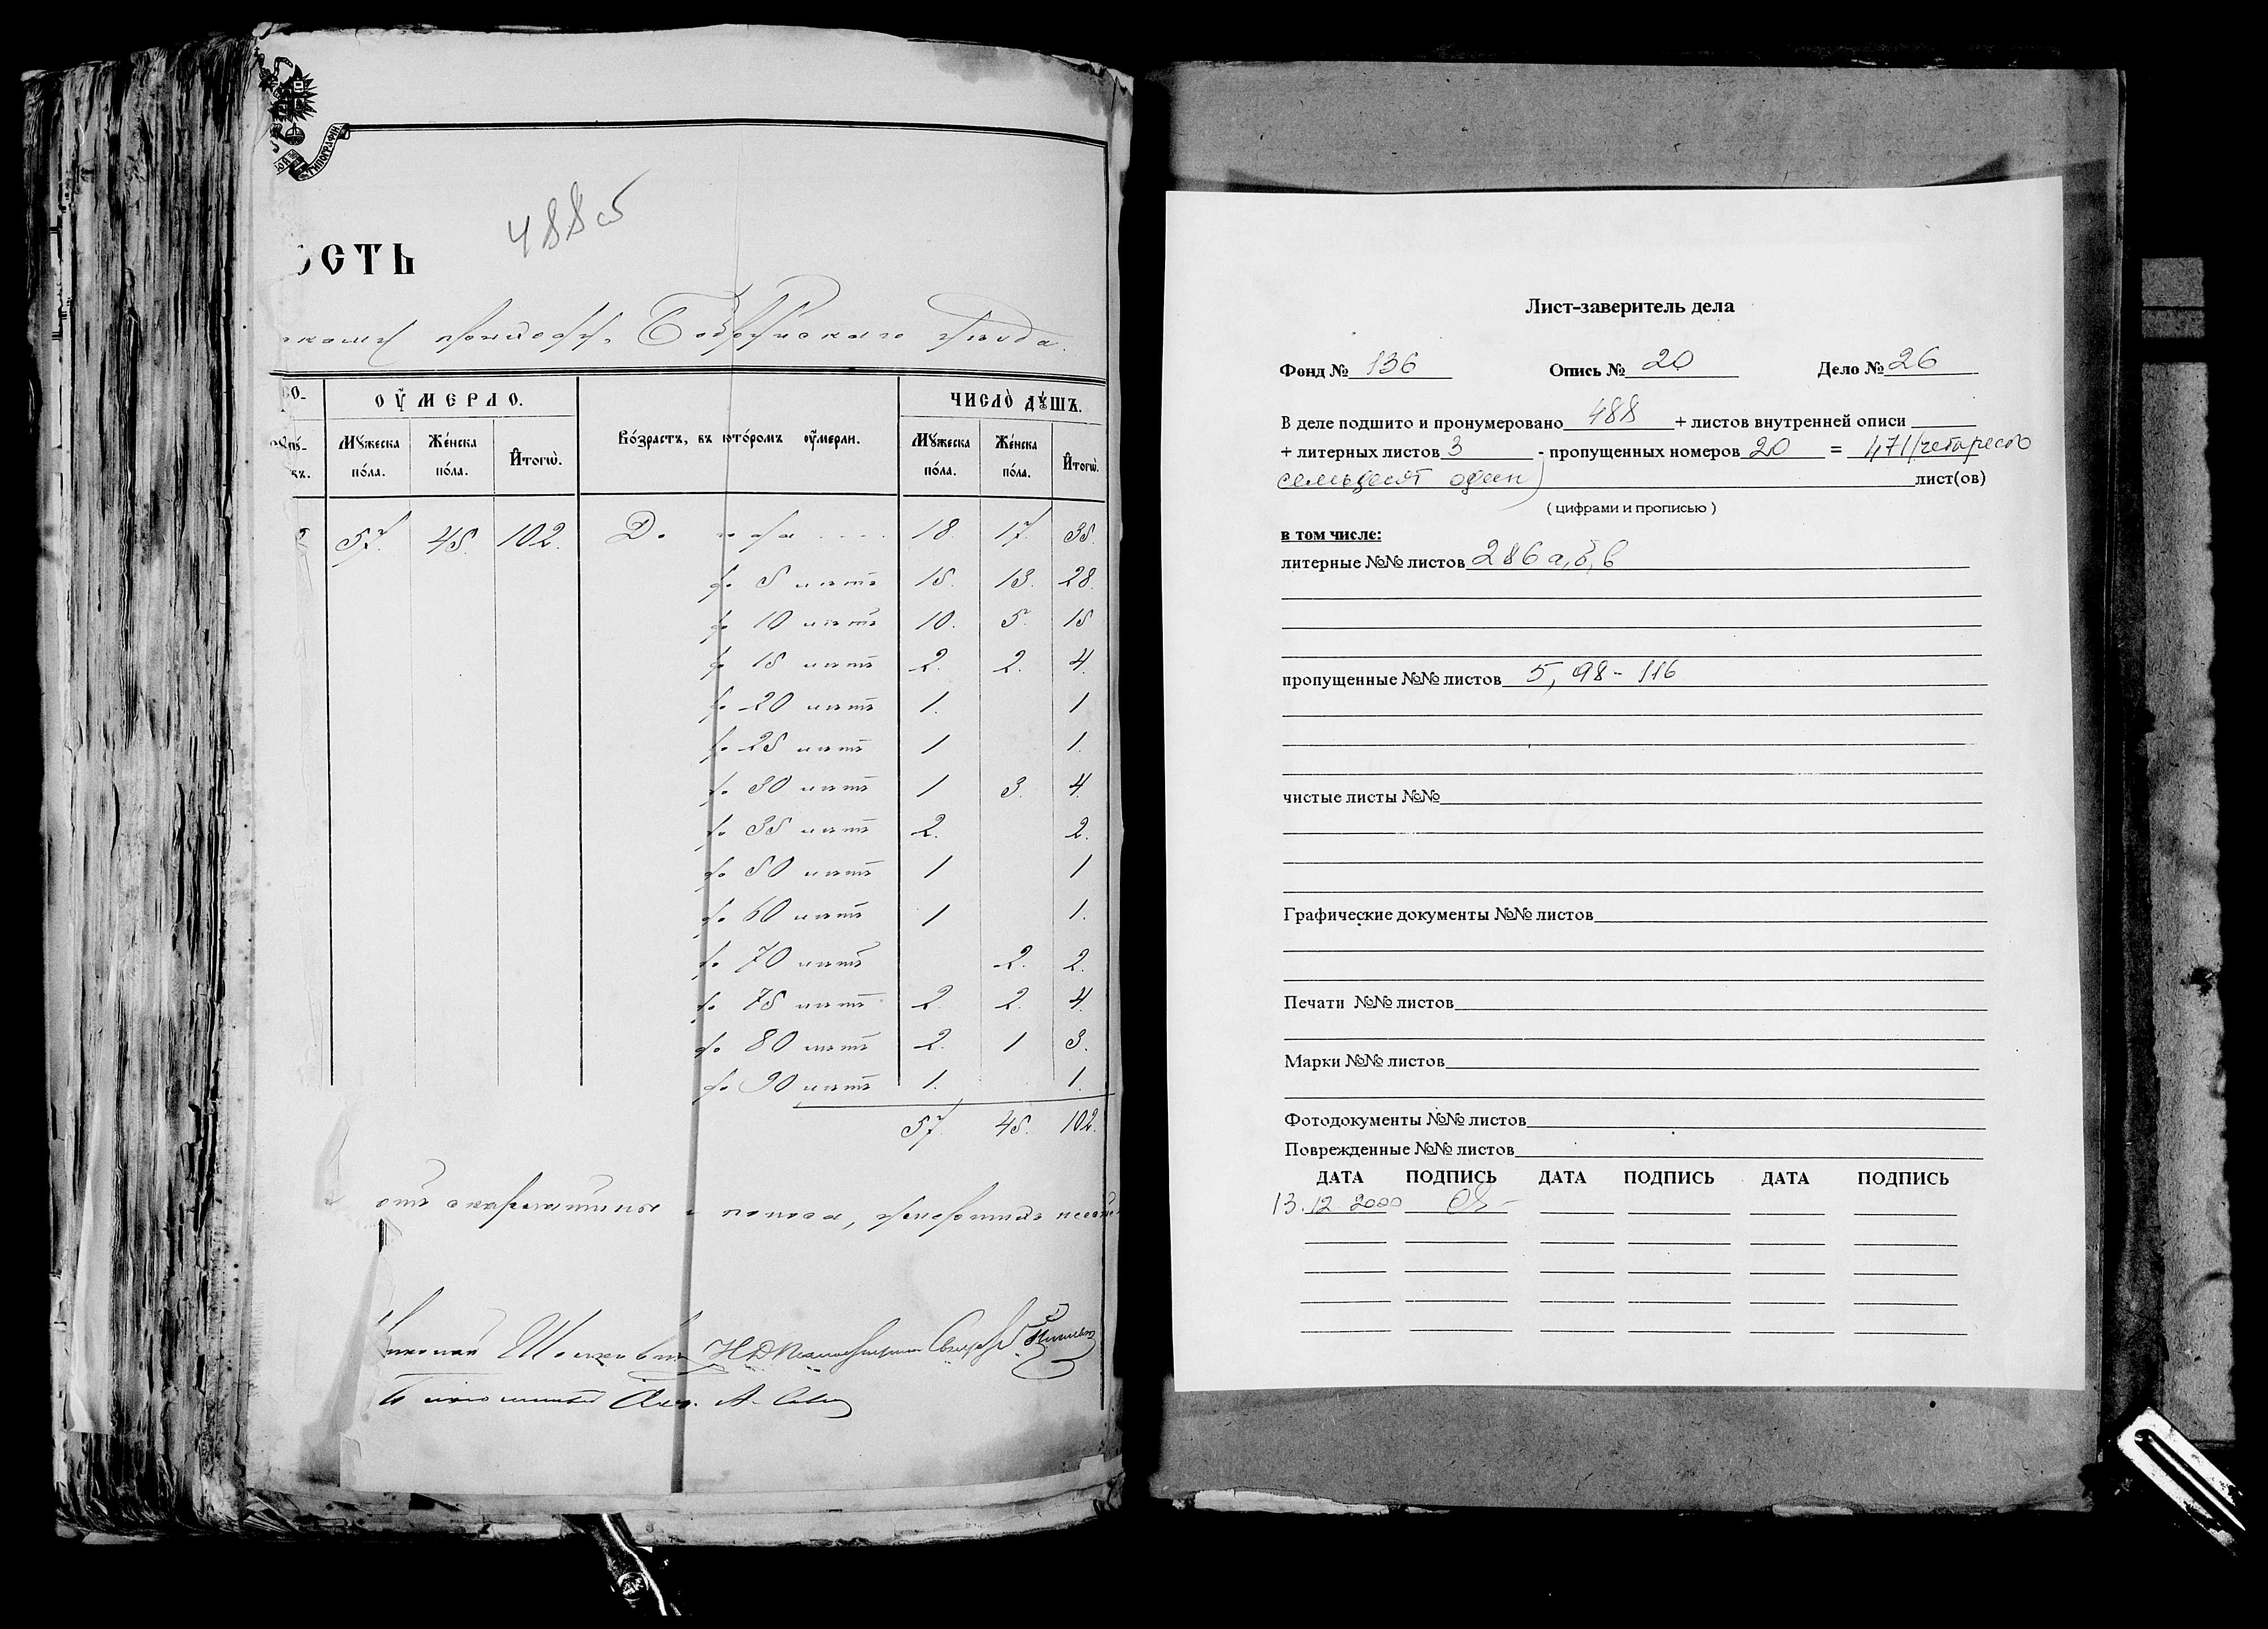 ТИПОГРАФІИ
488об
ОСТЬ
приходу, Бобруйскаго уѣзда.
ОУМЕРЛО. ЧИСЛО ДУШЪ.
Мужеска пола. Женска пола. Итогѡ. Возрастъ, въ которомъ оумерли. Мужеска пола. Женска пола. Итогѡ.
57. 45. 102. До года .... 18. 17. 35.
до 5 лѣтъ 15. 13. 28.
до 10 лѣтъ 10. 5. 15
до 15 лѣтъ 2. 2. 4.
до 20 лѣтъ 1. 1
до 25 лѣтъ 1 1.
до 30 лѣтъ 1 3. 4.
до 35 лѣтъ 2. 2.
до 50 лѣтъ 1 1
до 60 лѣтъ 1 1.
до 70 лѣтъ 2. 2.
до 75 лѣтъ 2. 2. 4.
до 80 лѣтъ 2. 1 3.
до 90 лѣтъ 1. 1.
57. 45. 102.
отъ скарлатины и поноса,
Лист-заверитель дела
Фонд № 136 Опись № 20 Дело № 26
В деле подшито и пронумеровано 488 + листов внутренней описи
+ литерных листов 3 - пропущенных номеров 20 = 471 (четыреста
семьдесят один) лист(ов)
( цифрами и прописью )
в том числе:
литерные №№ листов 286 а, б, в
пропущенные №№ листов 5, 98 - 116
чистые листы №№
Графические документы №№ листов
Печати №№ листов
Марки №№ листов
Фотодокументы №№ листов
Поврежденные №№ листов
ДАТА ПОДПИСЬ ДАТА ПОДПИСЬ ДАТА ПОДПИСЬ
13.12 2000